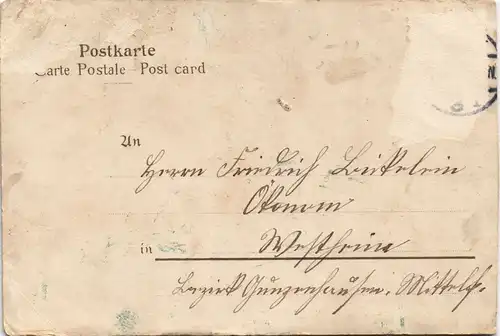 Postkarte
Carte Postale – Post card
An
Herrn Friedrich Beikelein
Ökonom
in Westheim
Bezirk Gunzenhausen. Mittelf.